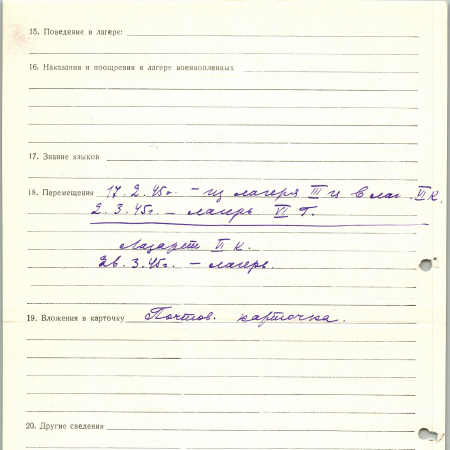 15. Поведение в лагере:
16. Наказания и поощрения в лагере военнопленных
17. Знание языков
18. Перемещения 17.2.45г. – из лагеря III ц в лаг. VI К.
2.3.45г. – лагерь VI Г.
Лазарет VI К.
26.3.45г. – лагерь.
19. Вложения в карточку Почтов. карточка.
20. Другие сведения